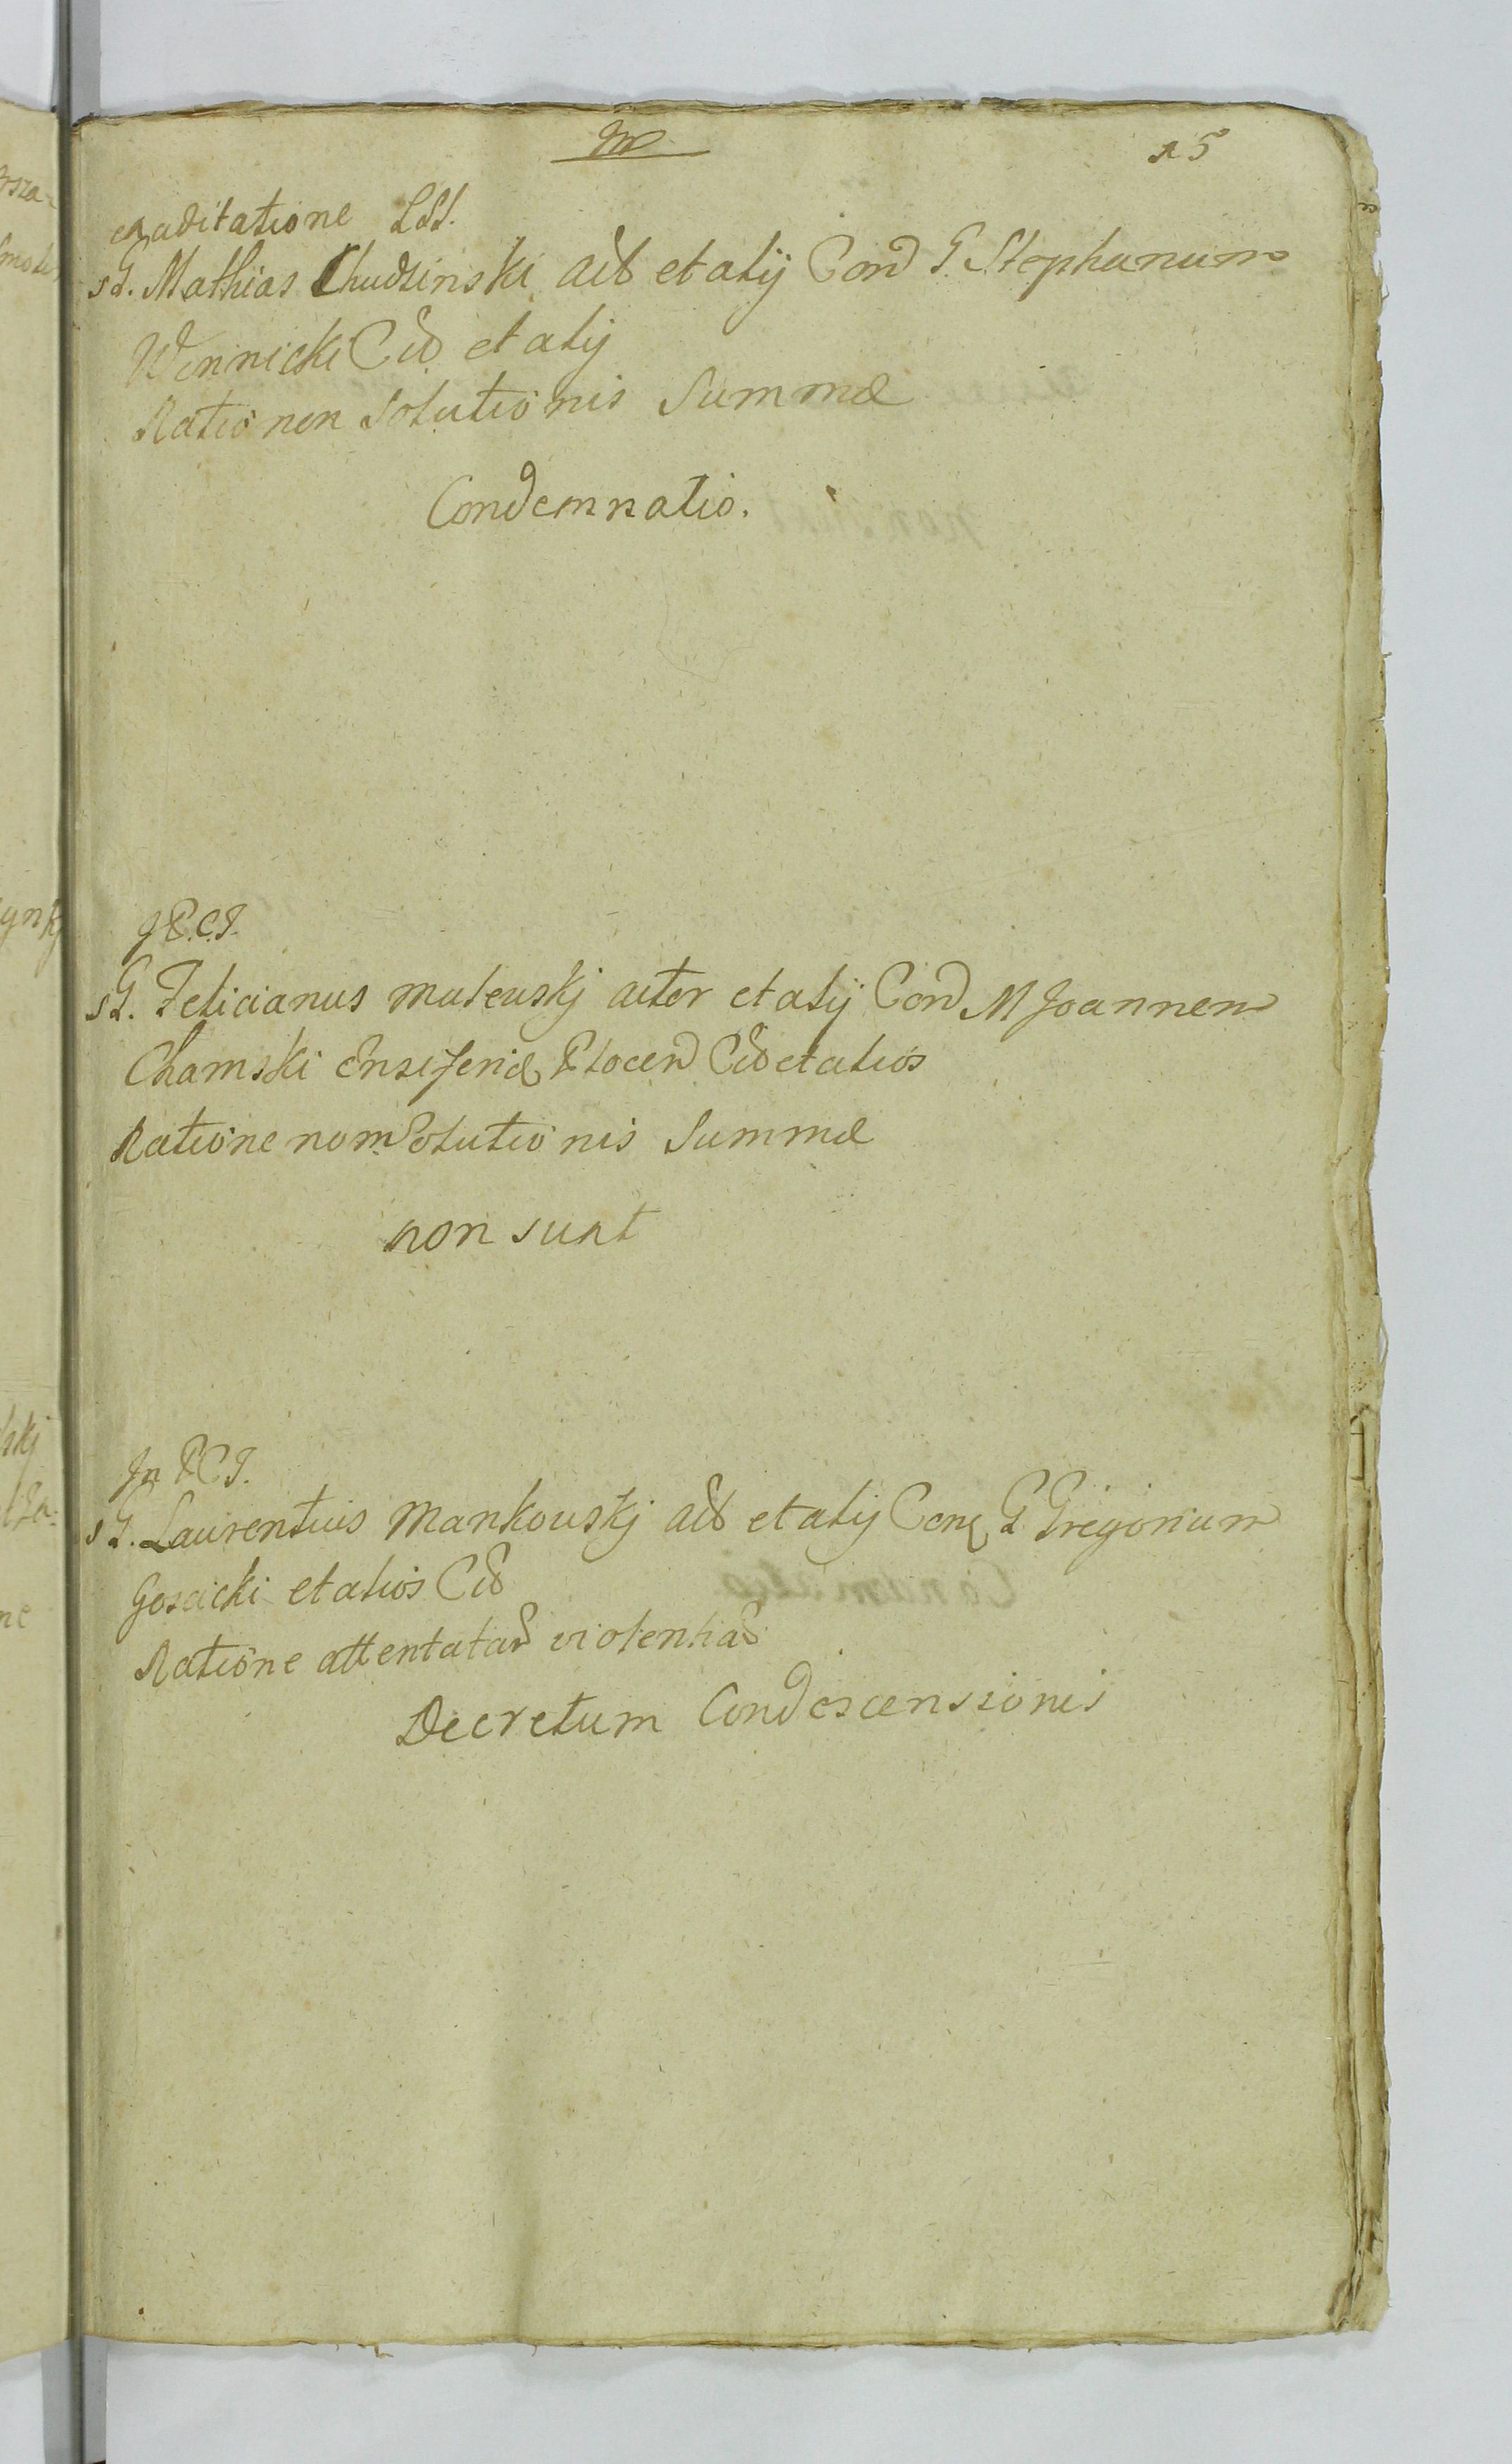 M
15
ex aditatione LSS.
sG. Mathias Chudzinski act et alij Con G. Stephanum
Winnicki Cit et alij
Ratio non Solutionis Summæ
Condemnatio.
J P.C.J.
sG. Felicianus Mulewskj actor et alij Con M Joannem
Chamski Ensiferu Plocen Cit et alios
Ratione non Solutionis Summæ
non sunt
Jn P C J.
sG. Laurentius Mankowskj act et alij Con G Gregorium
Goscicki et alios Cit
Ratione attentatar violentiar
Decretum Condescensionis